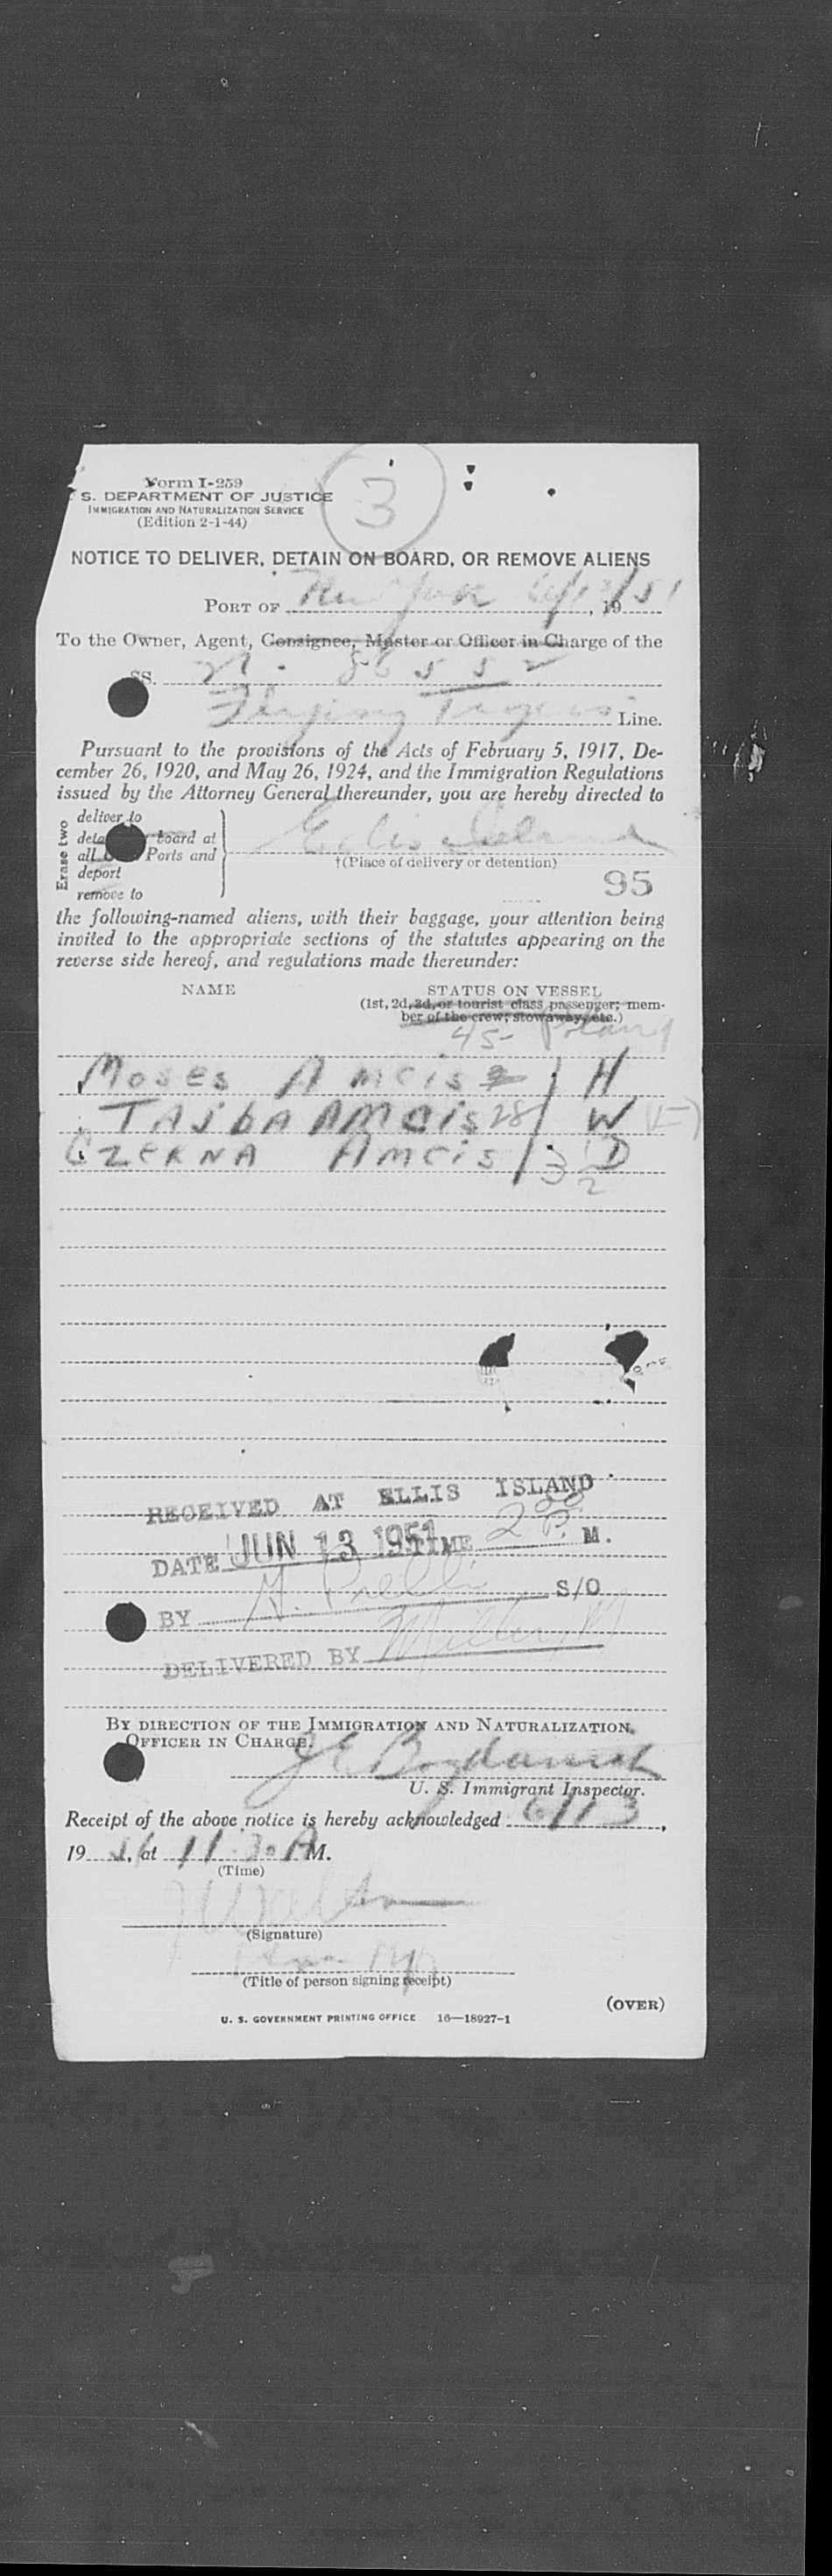 3
Form I-259
S. DEPARTMENT OF JUSTICE
IMMIGRATION AND NATURALIZATION SERVICE
(Edition 2-1-44)
NOTICE TO DELIVER, DETAIN ON BOARD, OR REMOVE ALIENS
PORT OF New York 6/13/51, 19
To the Owner, Agent, Consignee, Master or Officer in Charge of the
SS. N. 86552
Flying Tigers Line.
Pursuant to the provisions of the Acts of February 5, 1917, De-
cember 26, 1920, and May 26, 1924, and the Immigration Regulations
issued by the Attorney General thereunder, you are hereby directed to
Erase two
deliver to
board at
all Ports and
deport
remove to
Ellis Island
†(Place of delivery or detention)
95
the following-named aliens, with their baggage, your attention being
invited to the appropriate sections of the statutes appearing on the
reverse side hereof, and regulations made thereunder:
NAME
STATUS ON VESSEL
(1st, 2d, 3d, or tourist class passenger; mem-
ber of the crew; stowaway, etc.)
45- Poland
Moses Ameis H
TAJBA AMeis 28 W
CZERNA Ameis 3 1/2 D
RECEIVED AT ELLIS ISLAND
DATE JUN 13 1951 TIME 2 00 P. M.
BY S/O
DELIVERED BY
BY DIRECTION OF THE IMMIGRATION AND NATURALIZATION
OFFICER IN CHARGE.
U. S. Immigrant Inspector.
Receipt of the above notice is hereby acknowledged 6/13,
19 51, at 11:30 A M.
(Time)
(Signature)
(Title of person signing receipt)
(OVER)
U. S. GOVERNMENT PRINTING OFFICE 16—18927-1